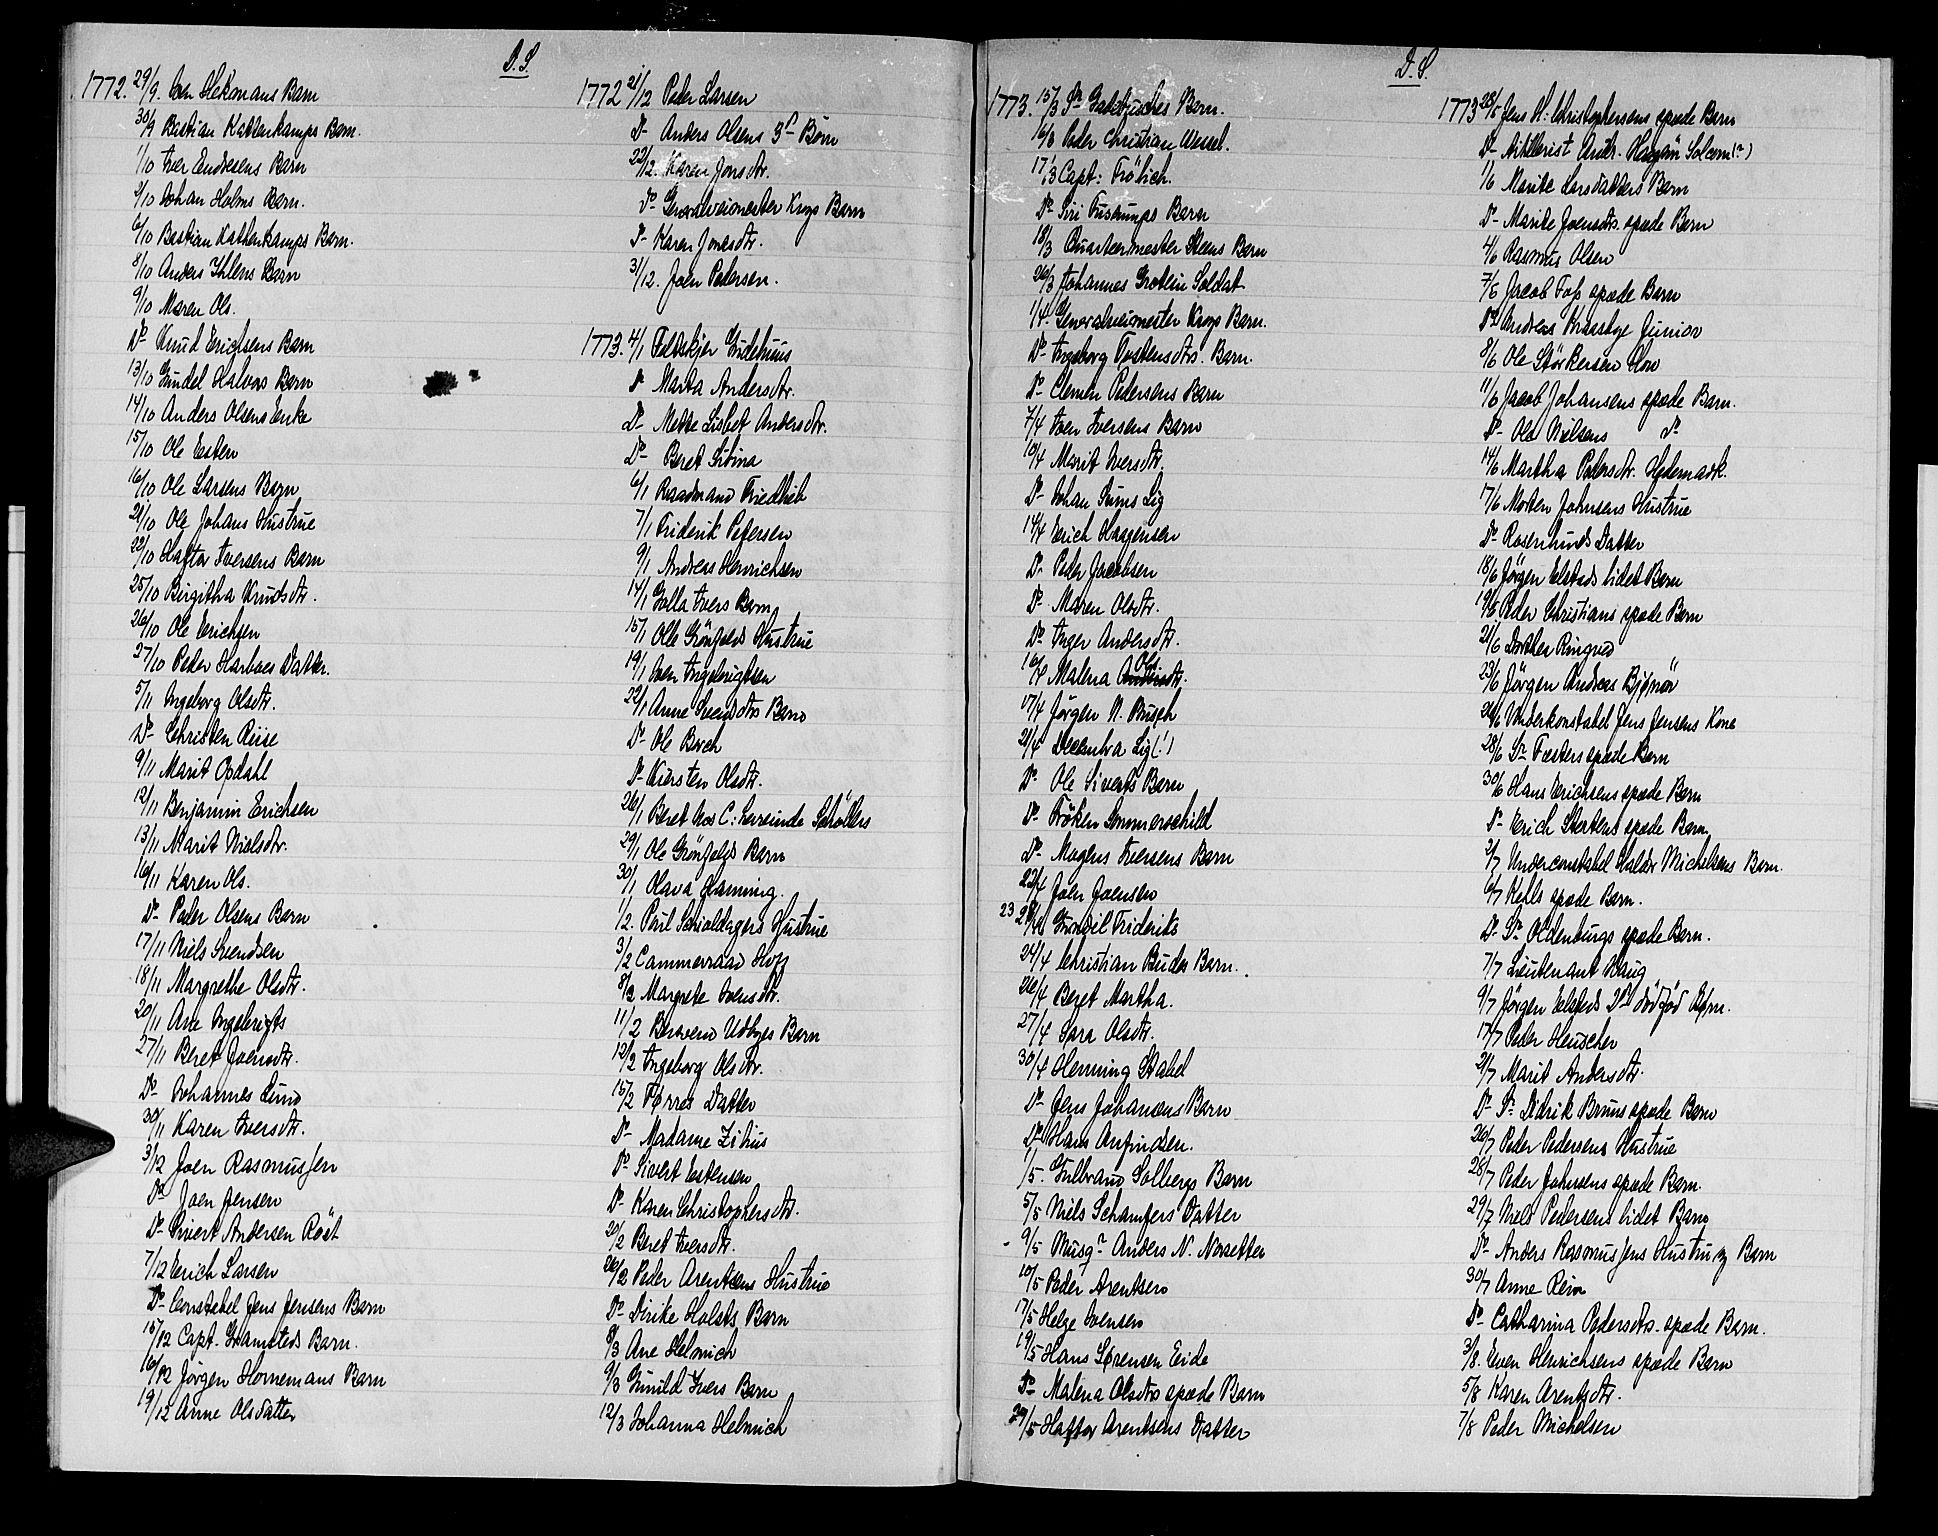 D.S.
1772. 29/9. Iver Hekmans Barn
30/9 Bastian Kattenkamps Barn.
1/10 Iver Endresens Barn
2/10 Johan Holms Barn.
6/10 Bastian Kattenkamps Barn.
8/10 Anders Ihlens Barn
9/10 Maren Ols.
Do Knud Erichsens Barn
13/10 Gundel Halvors Barn
14/10 Anders Olsens Enke
15/10 Ole Esten
16/10 Ole Larsens Barn
21/10 Ole Johans Hustrue
22/10 Haftor Iversens Barn
25/10 Birgitha Knudsdtr.
26/10 Ole Erichsen
27/10 Peder Harboes Datter.
5/11 Ingeborg Olsdtr.
Do Christen Riise
9/11 Marit Opdahl
12/11 Benjamin Erichsen
13/11 Marit Nielsdtr.
16/11 Karen Ols.
Do Peder Olsens Barn
17/11 Niels Svendsen
18/11 Margrethe Olsdtr.
20/11 Ane Ingebrigts
27/11 Beret Joensdtr.
Do Johannes Lund
30/11 Karen Iversdtr.
3/12 Joen Rasmussen
Do Joen Jensen
Do Sivert Andersen Röst
7/12 Erich Larsen
Do Constabel Jens Jensens Barn
15/12 Capt. Gramsteds Barn.
16/12 Jörgen Hornemans Barn
19/12 Anne Olsdatter
1772 21/12 Peder Larsen
Do Anders Olsens 3de Børn
22/12. Karen Jonsdtr.
Do Generalveimester Krogs Barn
Do Karen Jonsdtr.
31/12. Joen Pedersen.
1773. 4/1 Feltskjer Gudehuus
Do Marta Andersdtr.
Do Mette Lisbet Andersdtr.
Do Beret Sivina
6/1 Raadmand Friedlieb
7/1 Friderik Petersen
9/1 Andreas Henrichsen
14/1 Golla Ivers Barn
15/1 Olle Grönfelds Hustrue
19/1 Iver Ingebrigtsen
22/1 Anne Svendsdtrs Barn
Do Ole Birch
Do Kirsten Olsdtr.
26/1 Beret hos C: Lucinde Schøllers
29/1 Ole Grönfelds Barn
30/1 Olava Hamming.
1/2. Poul Schioldagers Hustrue
3/2 Cammerraad Hoff
8/2 Margrete Svensdtr.
11/2 Berwend Udbyes Barn
12/2 Ingeborg Olsdtr.
15/2 Tørres Datter
Do Madame Zitius
Do Sivert Estensen
Do Karen Christophersdtr.
20/2 Beret Iversdtr.
26/2 Peder Arentsens Hustrue
Do Dirike Holsts Barn
8/3 Ane Helmich
9/3 Gunild Ivers Barn
12/3 Johanna Helmich
D.S.
1773. 15/3 Sr Gadebusches Barn.
16/3 Peder Christian Wessel.
17/3 Capt: Frölich.
Do Siri Tustrups Barn
18/3 Quartermester Steens Barn
26/3 Johannes Grotlin Soldat
1/4. Generalveimester Krogs Barn.
Do Ingeborg Tostensdtrs. Barn.
Do Clemen Pedersens Barn
7/4 Iver Iversens Barn
10/4 Marit Iversdtr.
Do Johan Sums Lig
14/4 Erich Haagensen
Do Peder Jacobsen
Do Maren Olsdtr.
Do Inger Andersdtr.
16/4 Malena Ols.dtr.
17/4 Jörgen N. Busch
21/4 Decentra Lig (!)
Do Ole Siverts Barn
Do Fröken Sommerschild
Do Mogens Iversens Barn
22/4 Joen Joensen
23 28/4 Gundil Frideriks
24/4 Christian Buchs Barn.
26/4 Beret Martha.
27/4 Sara Olsdtr.
30/4 Henning Stabel
Do Jens Johansens Barn
Do Hans Anfindsen.
1/5. Gulbrand Solbergs Barn
5/5 Niels Schanfers Datter
9/5 Musqr Anders N. Norsetter
10/5 Peder Arentsen
17/5 Helge Svensen
19/5 Hans Sørensen Eide
Do Malena Olsdtrs spæde Barn
24/5 Haftor Arentsens Datter
1773 28/5 Jens H: Christophersens spæde Barn
Do Artillerist Andr. Hagan Solcom (?)
1/6 Marite Larsdatters Barn
Do Marite Joensdtrs. spæde Barn
4/6 Rasmus Olsen
7/6 Jacob Fos spæde Barn
Do Andreas Kraabye Junior
8/6 Ole Störkersen Hov
11/6 Jacob Johansens spæde Barn.
Do Ole Nielsens Do
14/6 Martha Pedersdtr. Hedemark.
17/6 Morten Johnsens Hustrue
Do Rosenlunds Datter
18/6 Jörgen Elstads lidet Barn
19/6. Peder Christians spæde Barn
21/6 Dorthea Ringrud
23/6 Jörgen Andreas Bjørnör
26/6 Underkonstabel Jens Jensens Kone
28/6 Sr Fæsters spæde Barn
30/6 Hans Erichsens spæde Barn
Do Erich Stertens spæde Barn
2/7 Underconstabel Haldr Michelsens Barn.
6/7 Kehls spæde Barn.
Do Sr Oldenburgs spæde Barn.
7/7 Lieutenant Haug
9/7 Jörgen Elsteds 2de dödfød Børn.
17/7 Peder Heuscher
21/7 Marit Andersdtr.
Do Sr. Didrik Bruns spæde Barn
26/7 Peder Pedersens Hustrue
28/7 Peder Johnsens spæde Barn.
29/7 Niels Pedersens lidet Barn
Do Anders Rasmussens Hustru og Barn
30/7 Anne Reim
Do Catharina Pedersdtrs. spæde Barn.
3/8. Even Henrichsens spæde Barn
5/8 Karen Arentsdtr.
7/8 Peder Michelsen